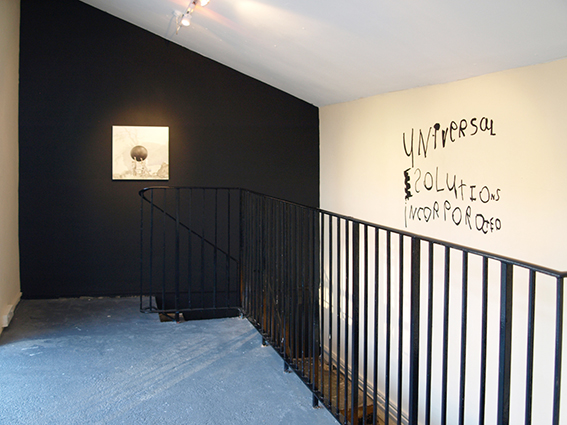 UNiversal
SOLUTIONS
iNCORPORATED